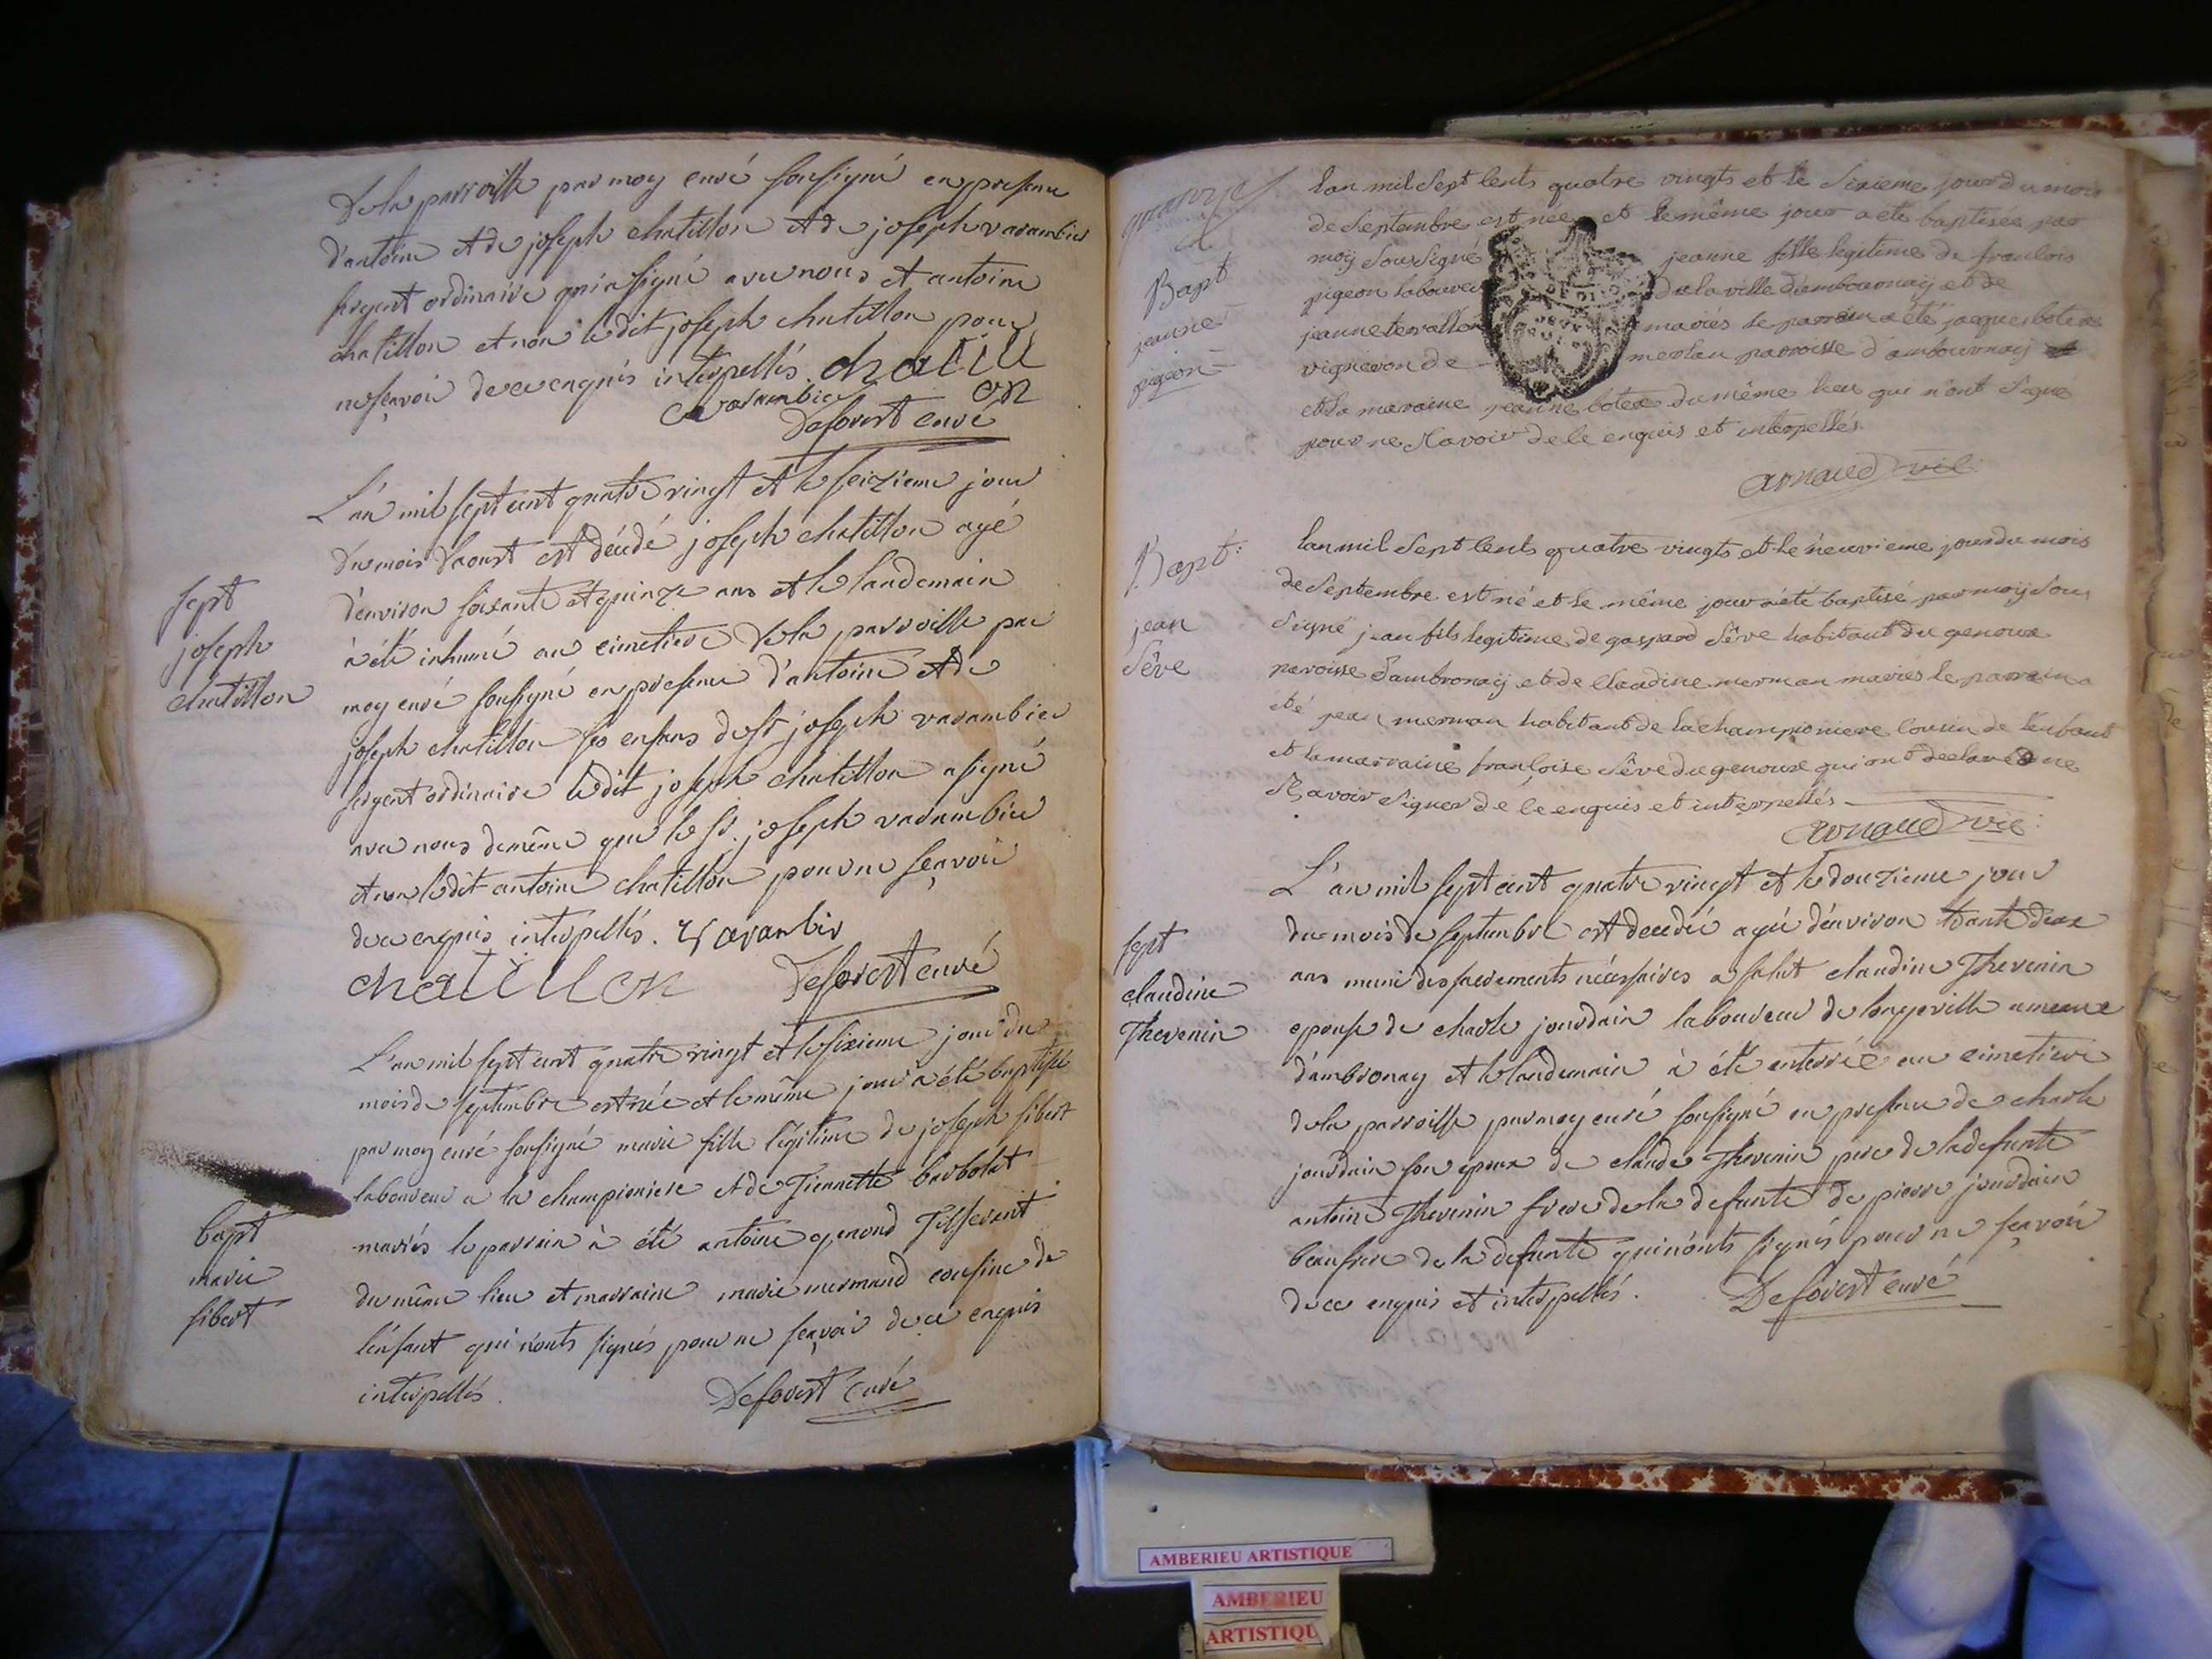 De la parroisse par moy curé sousigné en presence
d'antoine et de joseph chatillon et de joseph varambier
sergent ordinaire qui a signé avec nous et antoine
chatillon et non ledit joseph chatillon pour
ne sçavoir de ce enquis interpellés. chatill
on
varambier
Deforest curé
L'an mil sept cent quatre vingt et le seizieme jour
du mois d'aoust est décédé joseph chatillon agé
d'environ soixante et quinze ans et le landemain
à été inhumé au cimetiere de la parroisse par
moy curé sousigné en presence d'antoine et de
joseph chatillon ses enfans du sr joseph varambier
sergent ordinaire ledit joseph chatillon a signé
avec nous de même que le sr. joseph varambier
et non ledit antoine chatillon pour ne sçavoir
de ce enquis interpellés. Varambier
chatillon Deforest curé
sept
joseph
chatillon
L'an mil sept cent quatre vingt et le sixieme jour du
mois de septembre est née et le même jour a été baptisée
par moy curé sousigné marie fille légitime de joseph sibert
laboureur a la championiere et de Fiennette barbolat
mariés le parrain à été antoine genoud Tisserent
du même lieu et marraine marie mermand cousine de
l'enfant qui n'onts signés pour ne sçavoir de ce enquis
interpellés. Deforest Curé
bapt
marie
sibert
lan mil Sept Cents quatre vingts et le Sixieme jour du mois
de Septembre est née et le même jour a été baptisée par
moy Sous Signé jeanne fille legitime de francois
pigeon laboureur de la ville d'ambournay et de
jeanne mariés le parrain a été jacques botex
vigneron de merlan parroisse d'ambournay
et la maraine jeanne botex du même lieu qui n'ont Signé
pour ne Scavoir de Ce enquis et interpellés
arnaud vic:
Bapt
jeanne
pigeon
lan mil Sept Cents quatre vingts et le neuvieme jour du mois
de Septembre est né et le même jour a été baptisé par moy Sous
Signé jean fils legitime de gaspard Sêve habitant du genoux
paroisse d'ambronay et de Claudine merman mariés le parrain a
été jean merman habitant de la championiere Cousin de l'enfant
et la marraine françoise Sêve du genoux qui ont declaré ne
Sçavoir Signer de Ce enquis et interpellés
arnaud vic:
Bapt:
jean
Sêve
L'an mil sept cent quatre vingt et le douzieme jour
du mois de septembre est decedée agée d'environ trante deux
ans munie des sacrements nécessaires a salut claudine Thevenin
epouse de charle jourdain laboureur de longeville amexe
d'ambronay et le landemain à été enterrée au cimetiere
de la parroisse par moy curé sousigné en presence de charle
jourdain son epoux de claude Thevenin pere de la defunte
antoine Thevenin frere de la defunte de pierre jourdain
beaufrere de la defunte qui n'onts signés pour ne sçavoir
de ce enquis et interpellés. Deforest curé
sept
claudine
Thevenin
AMBERIEU ARTISTIQUE
AMBERIEU
ARTISTIQU